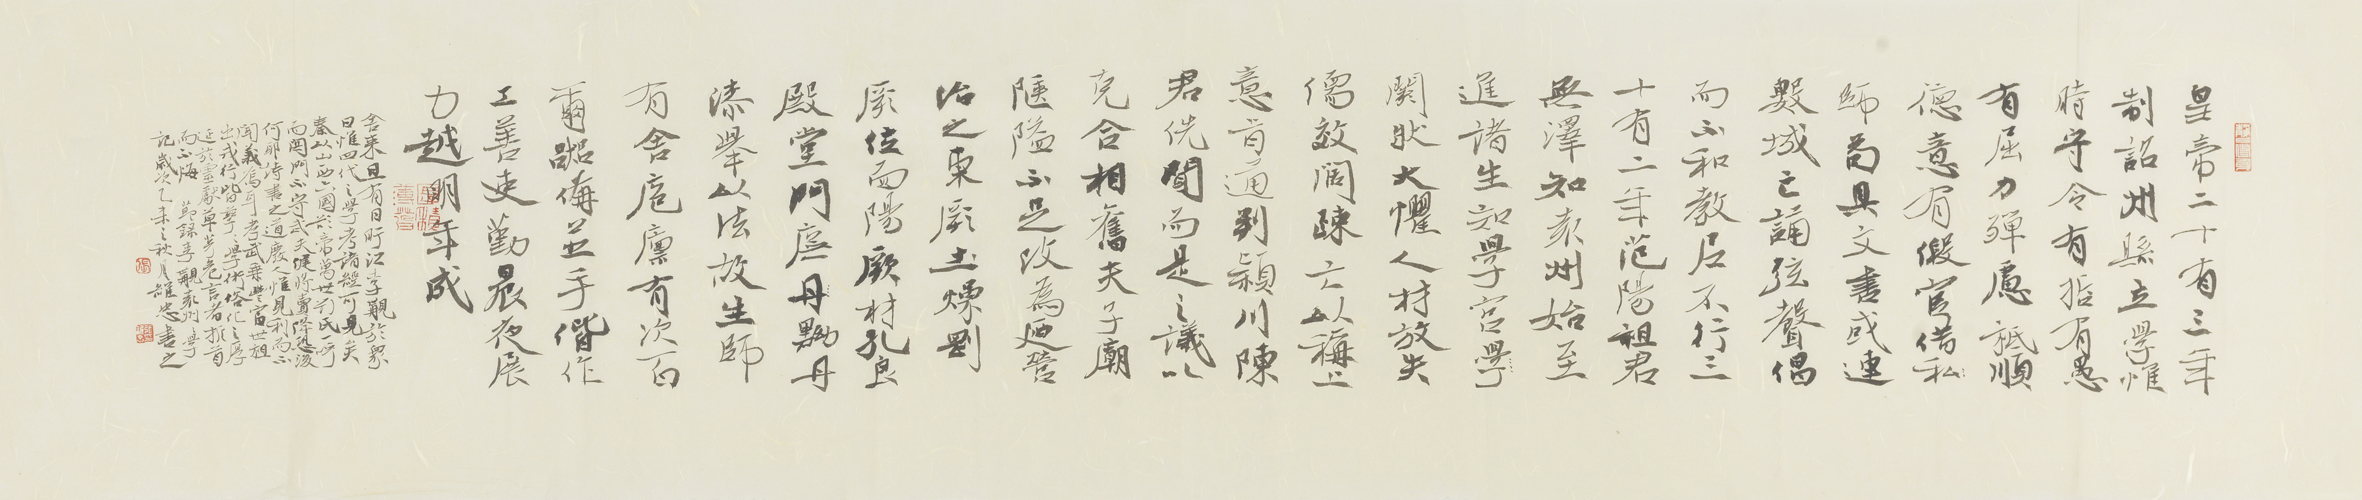 皇帝二十有三年
制詔州縣立學惟
時守令有哲有愚
有屈力殫慮祗順
德意有假官借私
師苟具文書或連
數城亡誦弦聲倡
而不和教尼不行三
十有二年范陽祖君
無澤知袁州始至
進諸生知學宮學
闕狀大懼人材放失
儒效闊疎亡以稱上
意旨通判潁川陳
君侁聞而是之議以
克合相舊夫子廟
陿隘不足改為廼營
治之東厥土燥剛
厥位面陽厥材孔良
殿堂門廡丹黝丹
漆舉以法故生師
有舍庖廩有次百
爾器備並手偕作
工善吏勤晨夜展
力越明年成
舍菜且有日盱江李覯於眾
曰惟四代之學考諸經可見矣
秦以山西六國欲帝萬世劉氏一呼
而關門不守武夫健將賣降恐後
何耶詩書之道廢人惟見利而不
聞義焉耳孝武乘豐富世祖
出戎行皆孳孳學術俗化之厚
延於靈獻草茅危言者折首
而不悔 節錄李覯袁州學
記歲次乙未之秋月 耀忠書之